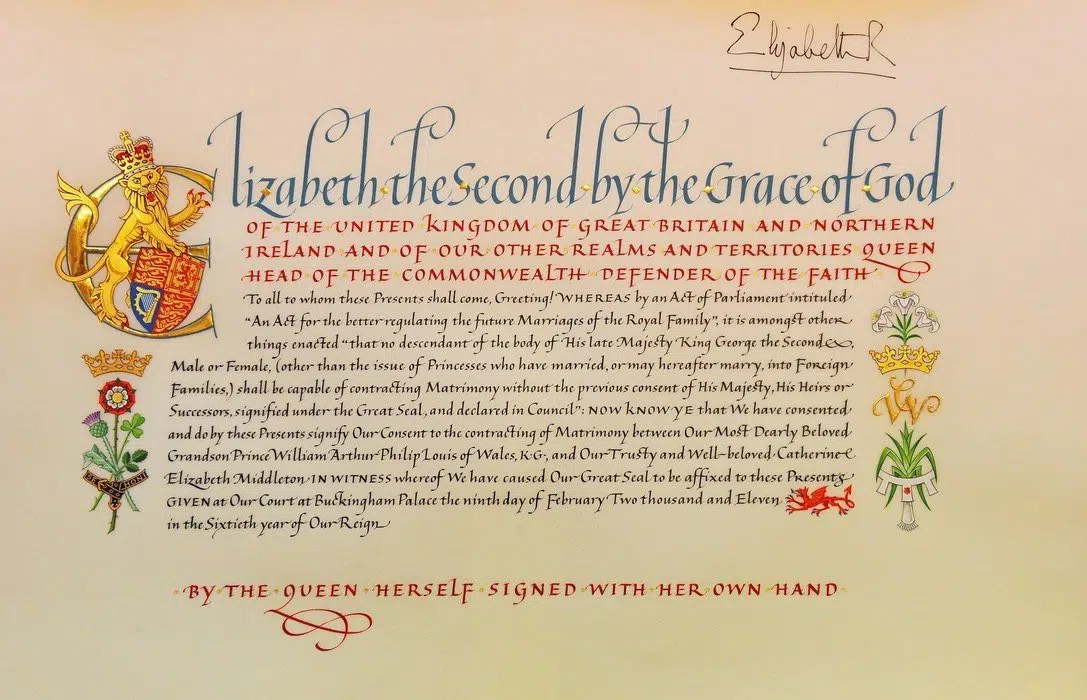 Elizabeth R
Elizabeth the Second by the Grace of God
OF THE UNITED KINGDOM OF GREAT BRITAIN AND NORTHERN
IRELAND AND OF OUR OTHER REALMS AND TERRITORIES QUEEN
HEAD OF THE COMMONWEALTH DEFENDER OF THE FAITH
To all to whom these Presents shall come, Greeting! WHEREAS by an Act of Parliament intituled
"An Act for the better regulating the future Marriages of the Royal Family", it is amongst other
things enacted "that no descendant of the body of His late Majesty King George the Second,
Male or Female, (other than the issue of Princesses who have married, or may hereafter marry, into Foreign
Families,) shall be capable of contracting Matrimony without the previous consent of His Majesty, His Heirs or
Successors, signified under the Great Seal, and declared in Council": NOW KNOW YE that We have consented
and do by these Presents signify Our Consent to the contracting of Matrimony between Our Most Dearly Beloved
Grandson Prince William Arthur Philip Louis of Wales, K.G., and Our Trusty and Well-beloved Catherine
Elizabeth Middleton IN WITNESS whereof We have caused Our Great Seal to be affixed to these Presents
GIVEN at Our Court at Buckingham Palace the ninth day of February Two thousand and Eleven
in the Sixtieth year of Our Reign
BY THE QUEEN HERSELF SIGNED WITH HER OWN HAND